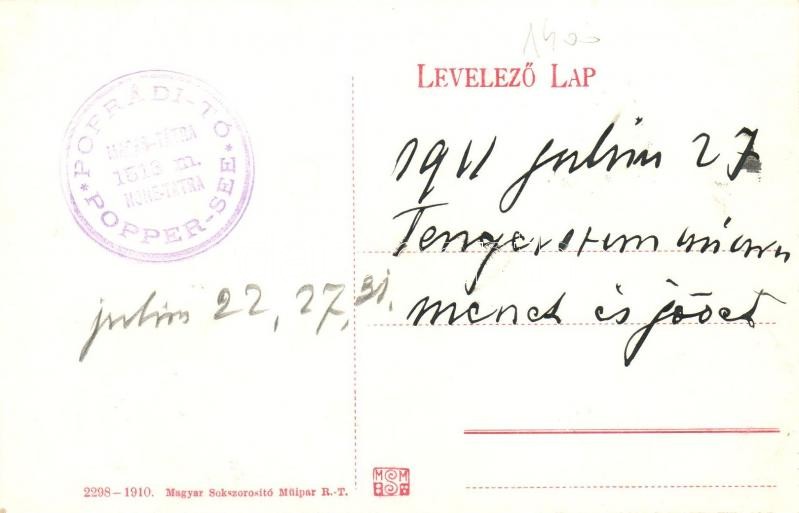 1400
LEVELEZŐ LAP
* POPRÁDI-TÓ *
MAGAS-TÁTRA
1513 m.
HOHE-TÁTRA
POPPER-SEE
1911 julius 27
Tengerszem csúcsra
menet és jövet
julius 22, 27, 31.
2298–1910. Magyar Sokszorosító Műipar R.-T.
M S M